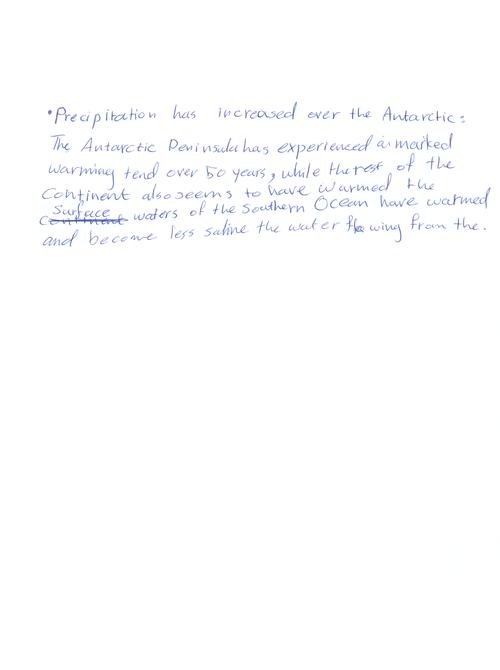 •Precipitation has increased over the Antarctic:
The Antarctic Peninsula has experienced a marked
warming tend over 50 years, while the rest of the
Continent also seems to have warmed the
Surface waters of the Southern Ocean have warmed
and become less saline the water flowing from the.